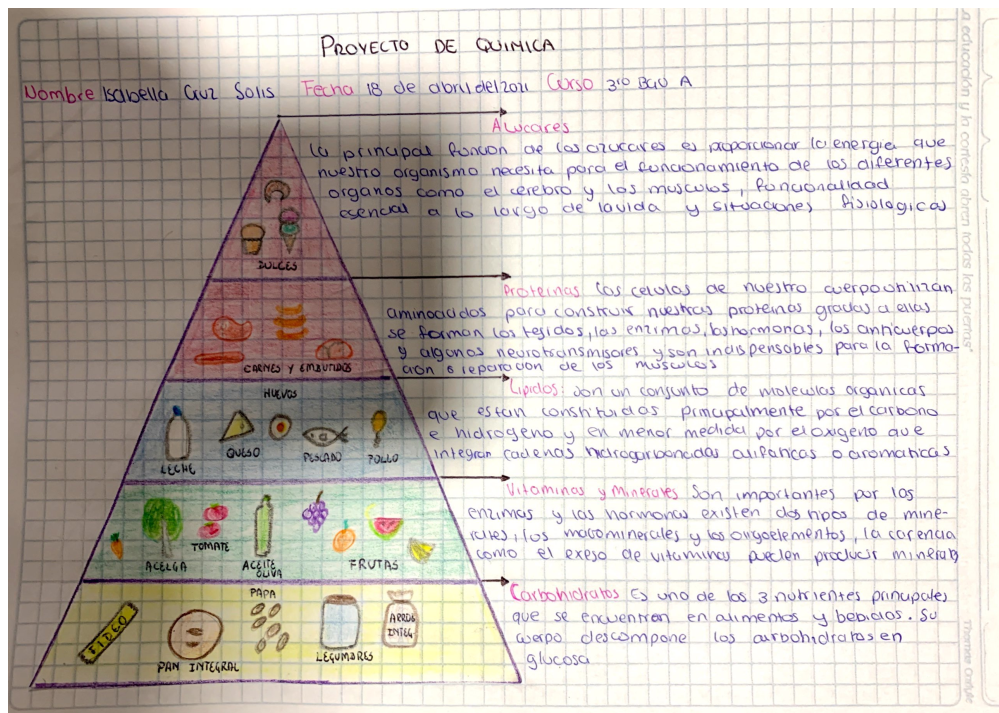 PROYECTO DE QUIMICA
Nombre Isabella Cruz Solis Fecha 18 de abril del 2021 Curso 3ro BGU A
Azucares
La principal funcion de los azucares es proporcionar la energia que
nuestro organismo necesita para el funcionamiento de los diferentes
organos como el cerebro y los musculos, funcionalidad
esencial a lo largo de la vida y situaciones fisiologicas
DULCES
Proteinas Las celulas de nuestro cuerpo utilizan
aminoacidos para construir nuestras proteinas gracias a ellas
se forman los tejidos, las enzimas, las hormonas, los anticuerpos
y algunos neurotransmisores, y son indispensables para la forma-
ción o reparacion de los musculos
CARNES Y EMBUTIDOS
Lipidos: Son un conjunto de moleculas organicas
que estan constituidas principalmente por el carbono
e hidrogeno y en menor medida por el oxigeno que
integran cadenas hidrogarbonadas alifancas o aromaticas
HUEVOS
LECHE
QUESO
PESCADO
POLLO
Vitaminas y Minerales Son importantes por las
enzimas y las hormonas existen dos tipos de mine-
rales, los macominerales y los oligoelementos, la carencia
como el exeso de vitaminas pueden producir minerals
TOMATE
ACELGA
ACEITE
OLIVA
FRUTAS
Carbohidratos Es uno de los 3 nutrientes principales
que se encuentran en alimentos y bebidas. Su
cuerpo descompone los carbohidratos en
glucosa
PAPA
FIDEO
PAN INTEGRAL
LEGUMBRES
ARROS
INTEG.
La educación y la cortesía abren todas las puertas"
Thomas Carlyle